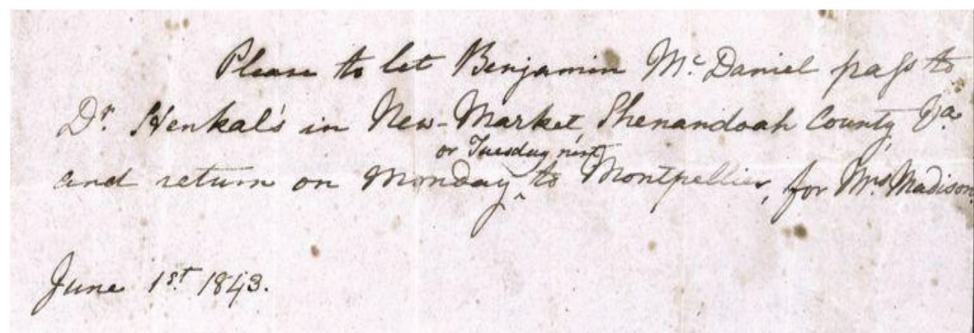 Please to let Benjamin McDaniel pass to
Dr. Henkal's in New-Market, Shenandoah County, Va.
or Tuesday next
and return on Monday ^ to Montpellier, for Mrs. Madison.
June 1st. 1843.